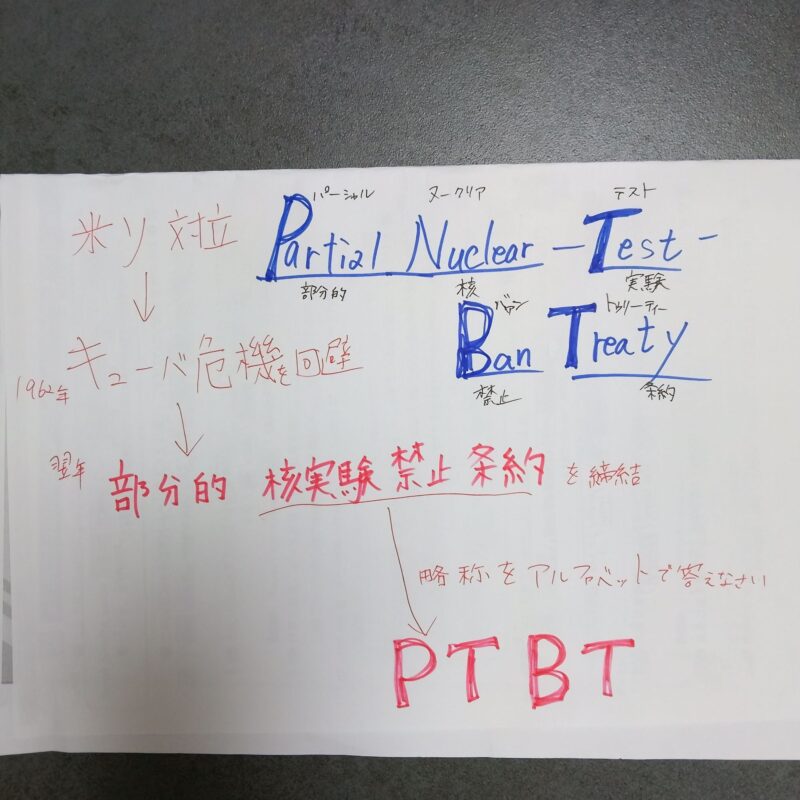 パーシャル ヌークリア テスト
Partial Nuclear -Test-
部分的 核 実験
バァン トゥリーティー
Ban Treaty
禁止 条約
米ソ対立
↓
1962年 キューバ危機を回避
↓
翌年 部分的 核実験禁止条約 を締結
↓
略称をアルファベットで答えなさい
PTBT